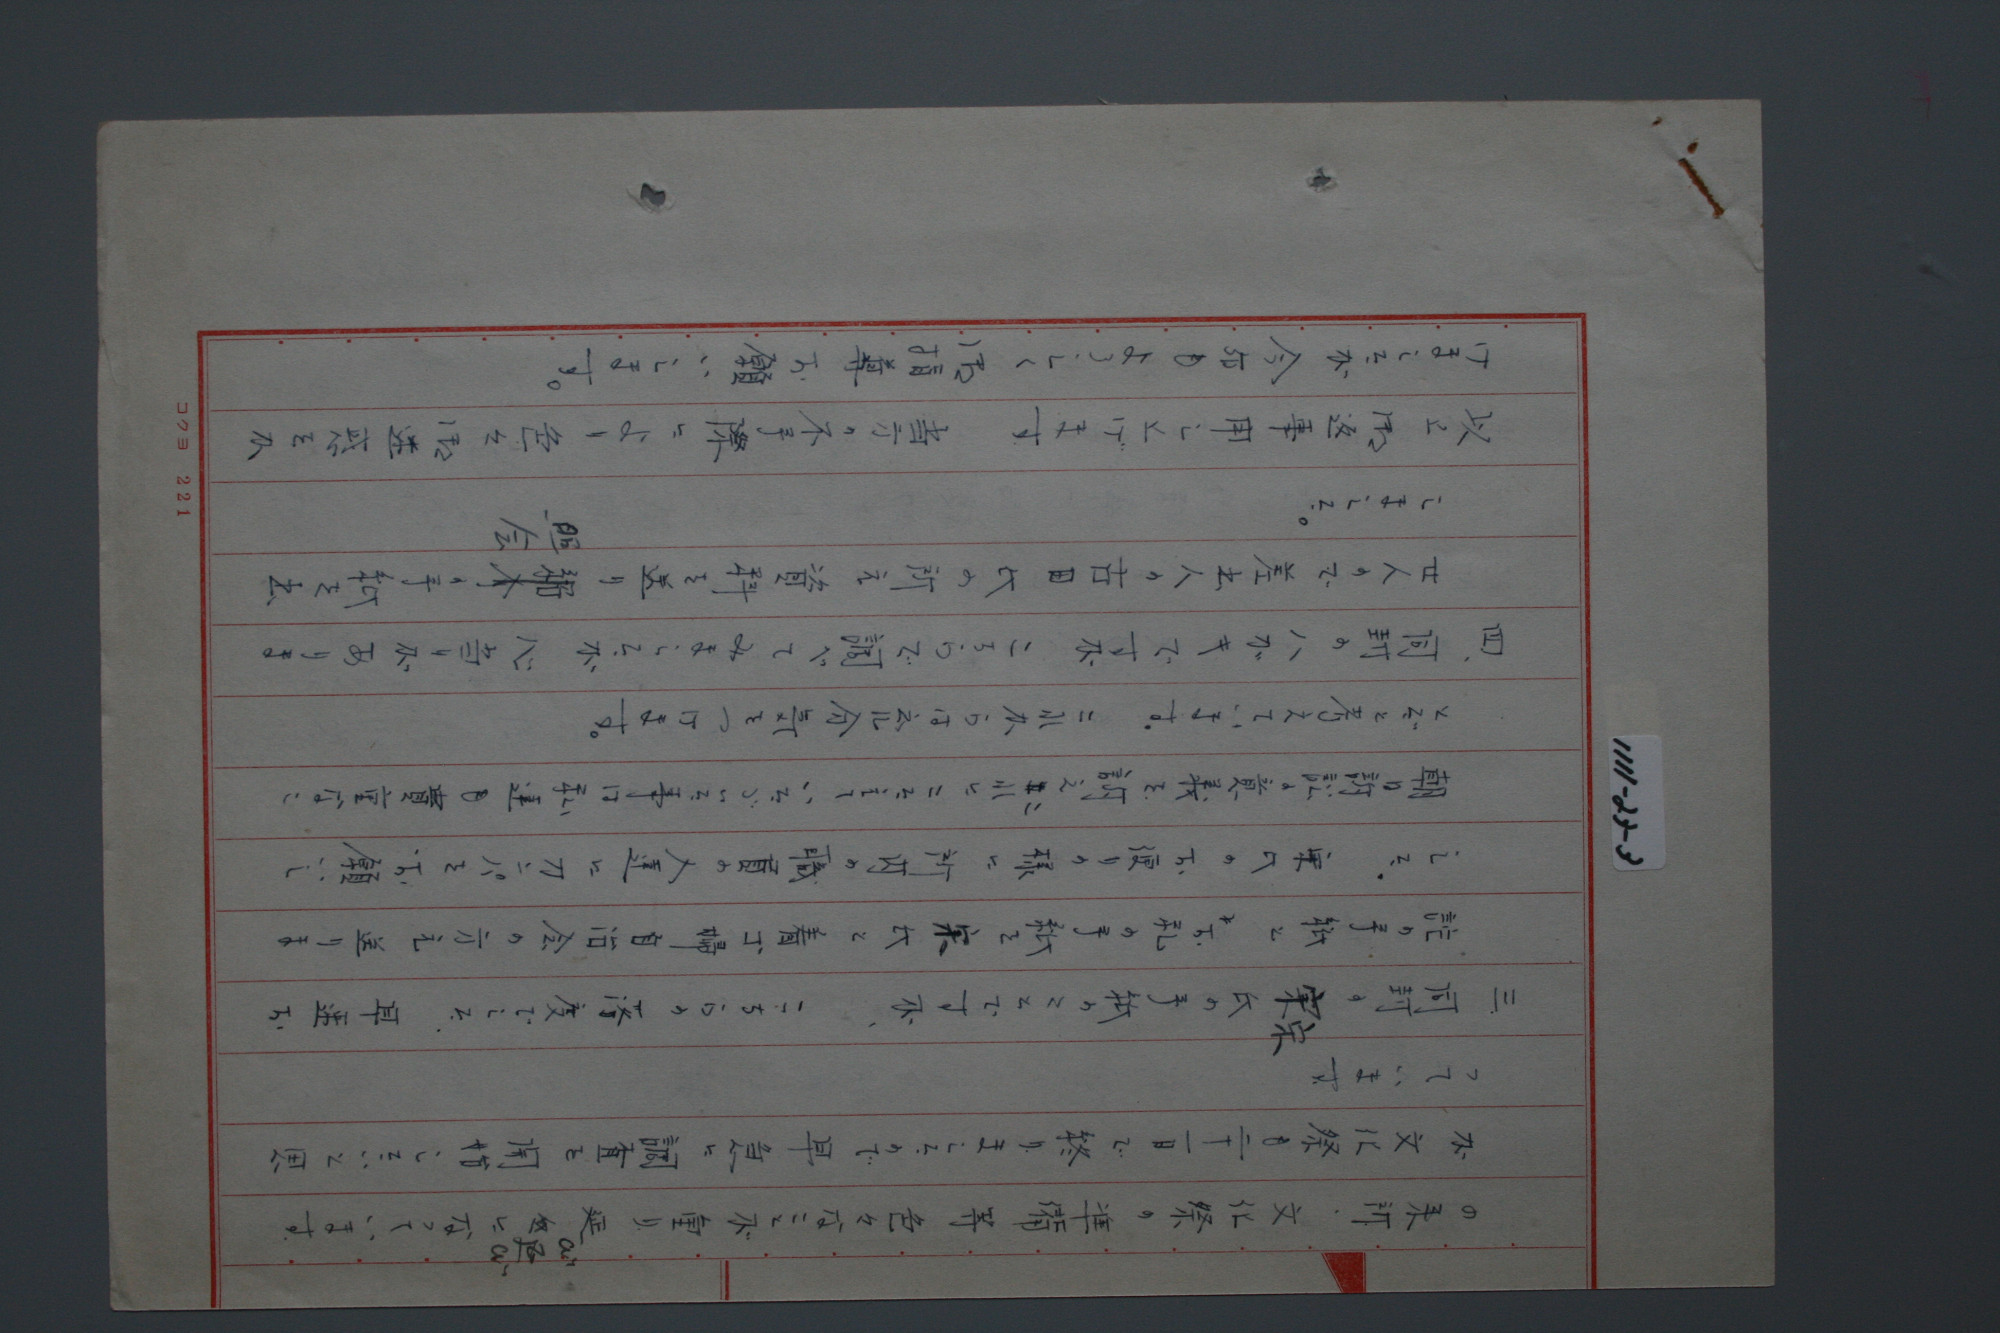 の来所、文化祭の準備等色々なことが重り延々になっています
のびのび
が文化祭も二十一日で終りましたので早急に調査を開始したいと思
っています
三、同封の宋氏の手紙のことですが、こちらの落度でした。早速お
宋
詫の手紙と お礼の手紙を宋氏と看丁婦自治会の方え送りま
した。宋氏のお便りの様に所内の職員の人達にカンパをお願いし
朝日訴訟の意義を訴えそれにこたえていただいた事は私達も貴重なこ
とだと考えています。これからは充分気をつけます。
四、同封のハガキですが こちらで調べてみましたが 心当りがありま
せんので差出人の吉田氏の所え資料を送り紹介の手紙を出
照会
しました。
以上御返事申し上げます 当方の不手際により色々御迷惑をか
けましたが今后もよろしく御指導お願いします。
コクヨ 221
1111-22-3